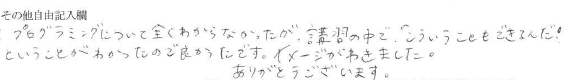 その他自由記入欄
プログラミングについて全くわからなかったが、講習の中で、"こういうこともできるんだ!"
ということがわかったので良かったです。イメージがわきました。
ありがとうございます。